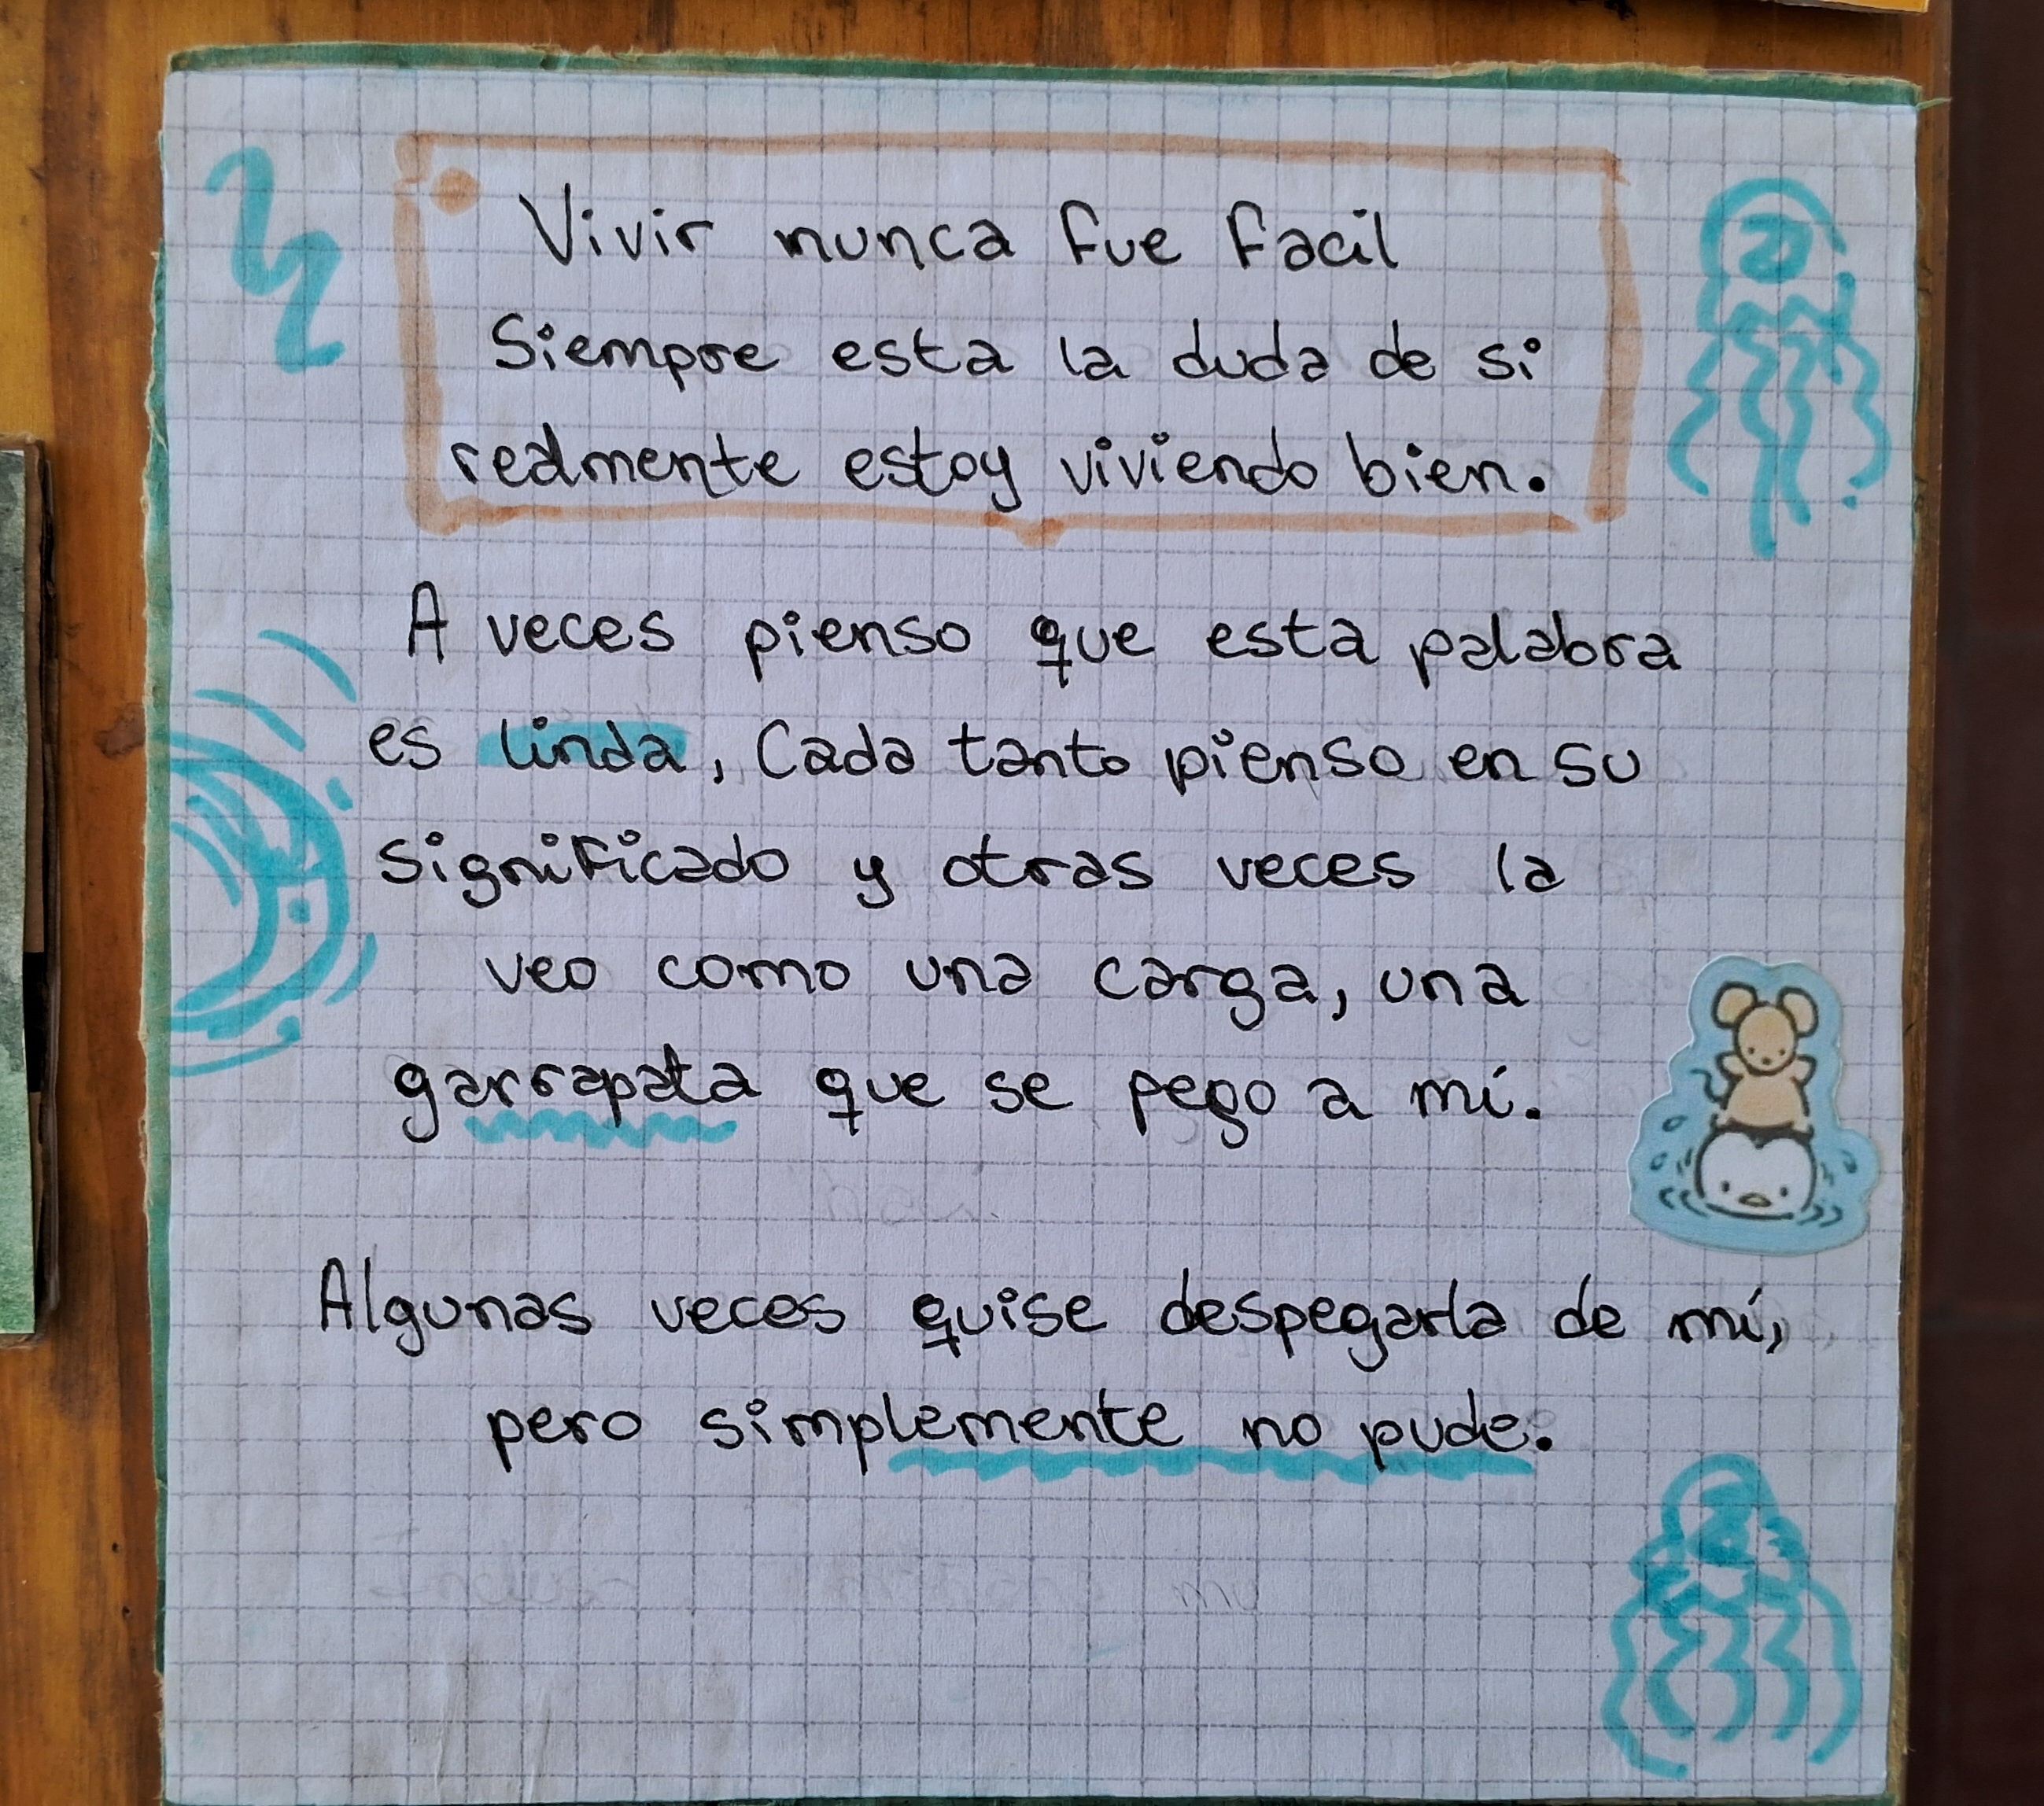 Vivir nunca fue facil
Siempre esta la duda de si
realmente estoy viviendo bien.
A veces pienso que esta palabra
es linda, Cada tanto pienso en su
significado y otras veces la
veo como una carga, una
garrapata que se pego a mí.
Algunas veces quise despegarla de mí,
pero simplemente no pude.